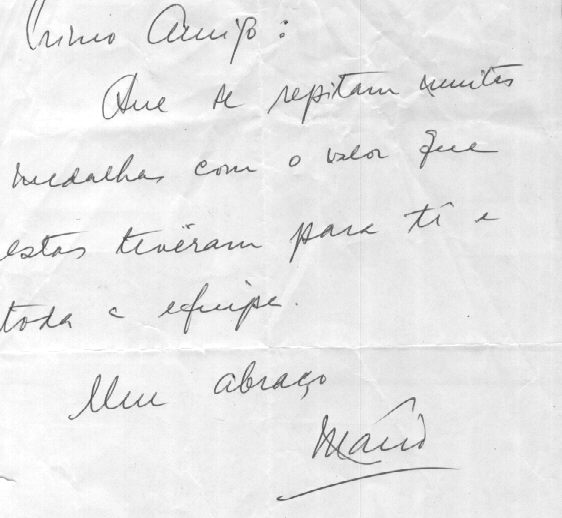 Primo Amigo:
Que se repitam muitas
medalhas com o valor que
estas tivéram para ti e
toda a equipe.
Um abraço
Mário